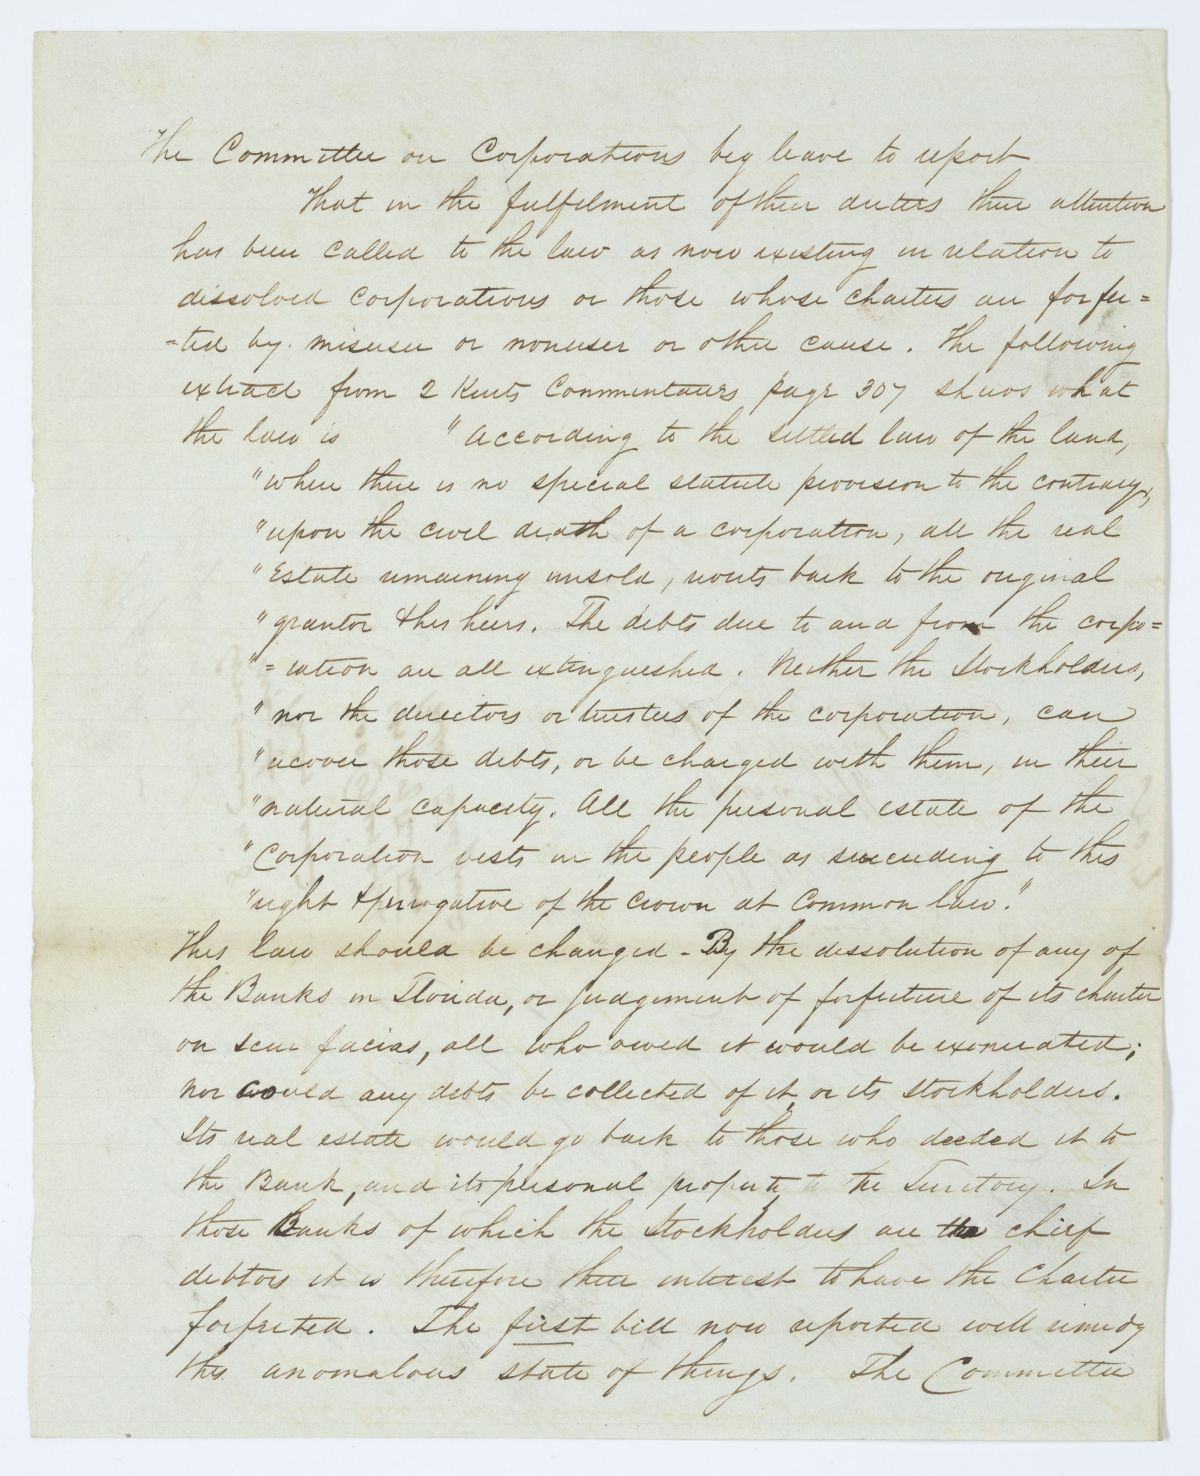 The Committee on Corporations beg leave to report
That in the fulfilment of their duties their attention
has been called to the law as now existing in relation to
dissolved corporations or those whose charters are forfei=
=ted by misuser or nonuser or other cause. The following
extract from 2 Kents Commentaries page 307 shows what
the law is "According to the settled law of the land,
"where there is no special statute provision to the contrary,
"upon the civil death of a corporation, all the real
"Estate remaining unsold, reverts back to the original
"grantor & his heirs. The debts due to and from the corpo=
"=ration are all extinguished. Neither the Stockholders,
"nor the directors or trustees of the corporation, can
"recover those debts, or be charged with them, in their
"natural capacity. All the personal estate of the
"Corporation vests in the people as succeeding to this
"right & prerogative of the Crown at Common law."
This law should be changed - By the dissolution of any of
the Banks in Florida, or judgement of forfeiture of its charter
on scire facias, all who owed it would be exonerated;
nor could any debts be collected of it, or its stockholders.
Its real estate would go back to those who deeded it to
the Bank, and its personal property to the Territory. In
those Banks of which the Stockholders are the chief
debtors it is therefore their interest to have the Charter
forfeited. The first bill now reported will remedy
this anomalous state of things. The Committee